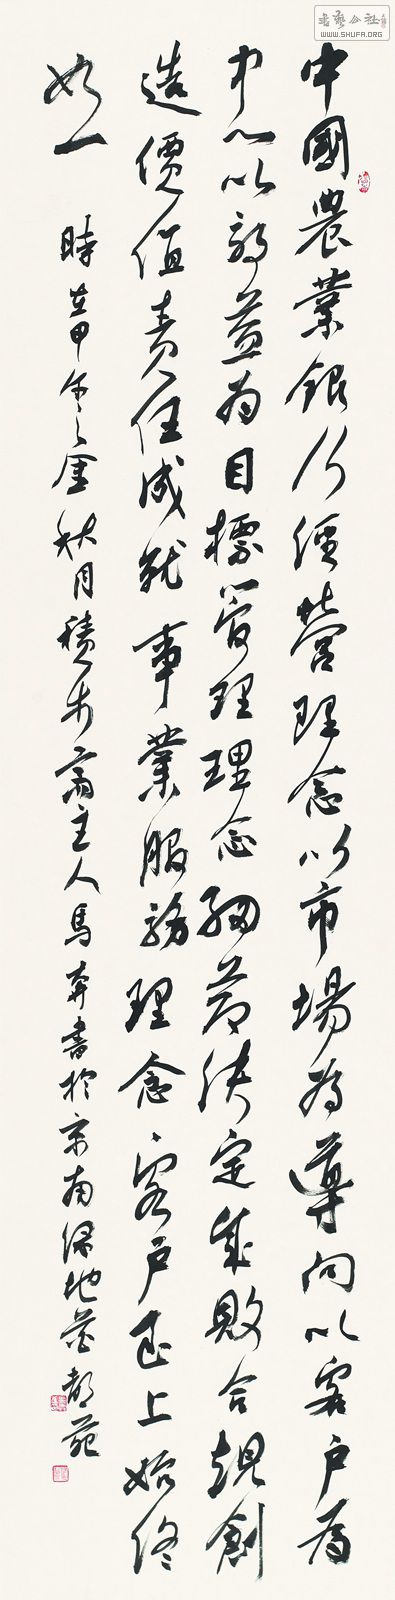 中國農業銀行經營理念以市場為導向以客戶為
中心以效益為目標管理理念細節決定成敗合規創
造價值責任成就事業服務理念客戶至上始終
如一
時在甲午之金秋月積步齋主人馬奔書於京南綠地花都苑
書藝公社
WWW.SHUFA.ORG